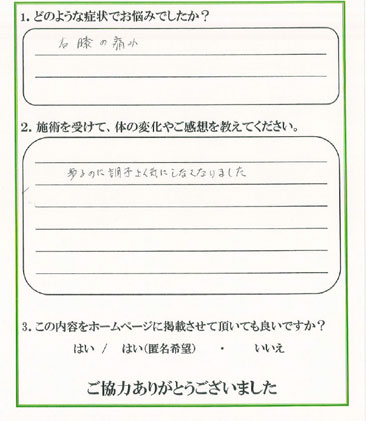 1. どのような症状でお悩みでしたか？
右膝の痛み
2. 施術を受けて、体の変化やご感想を教えてください。
歩くのに調子よく気にしなくなりました
3. この内容をホームページに掲載させて頂いても良いですか？
はい / はい(匿名希望) ・ いいえ
ご協力ありがとうございました